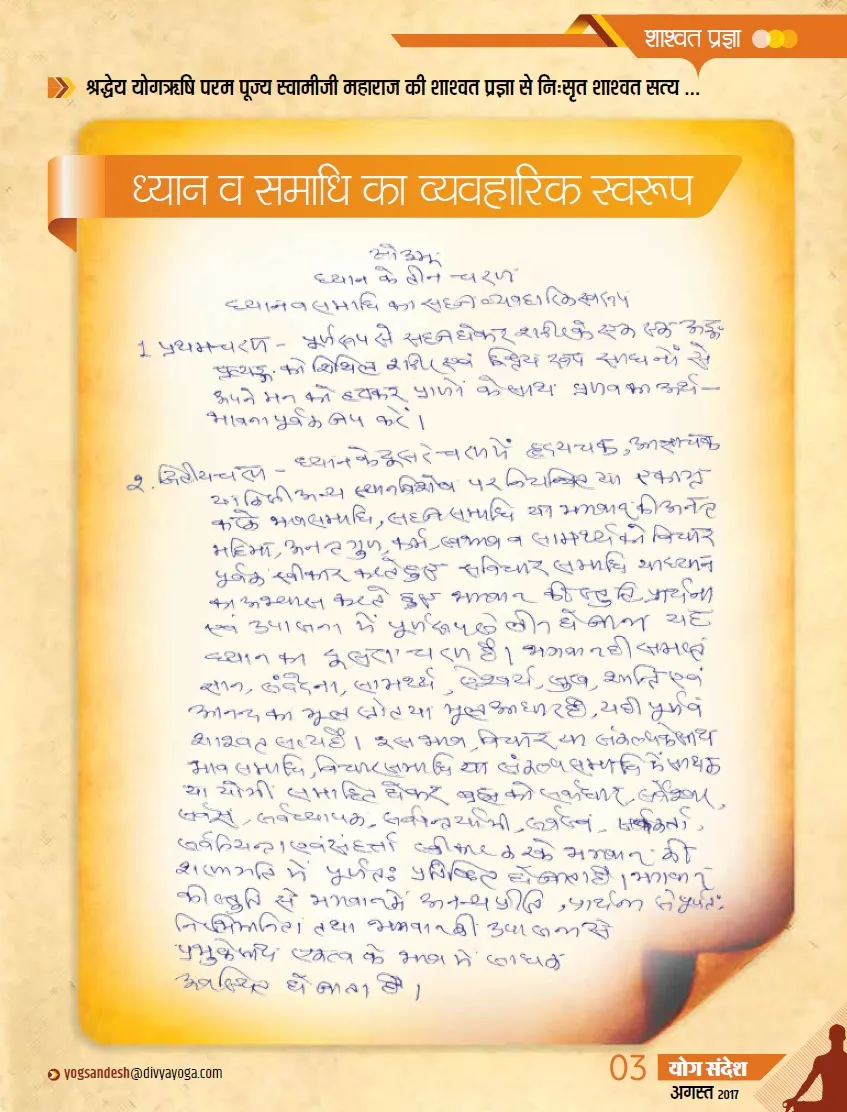 शाश्वत प्रज्ञा
श्रद्धेय योगऋषि परम पूज्य स्वामीजी महाराज की शाश्वत प्रज्ञा से निःसृत शाश्वत सत्य ...
ध्यान व समाधि का व्यवहारिक स्वरूप
ओ३म्
ध्यान के तीन चरण
ध्यान व समाधि का सहज व्यवहारिक स्वरूप
1 प्रथम चरण – पूर्ण रूप से सहज होकर शरीर के एक एक अङ्ग
प्रत्यङ्ग को शिथिल शरीर एवं इन्द्रिय रूप साधनों से
अपने मन को हटाकर प्राणों के साथ प्रणव का अर्थ–
भावना पूर्वक जप करें।
2. द्वितीय चरण – ध्यान के दूसरे चरण में हृदय चक्र, आज्ञा चक्र
या किसी अन्य स्थान विशेष पर नियन्त्रित या एकाग्र
करके भाव समाधि, सहज समाधि या भगवान् की अनंत
महिमा, अनन्त गुण, कर्म, स्वभाव व सामर्थ्य को विचार
पूर्वक स्वीकार करते हुए सविचार समाधि या ध्यान
का अभ्यास करते हुए भगवान की स्तुति, प्रार्थना
एवं उपासना में पूर्ण रूप से लीन हो जाना यह
ध्यान का दूसरा चरण है। भगवान ही समस्त
ज्ञान, संवेदना, सामर्थ्य, ऐश्वर्य, सुख, शान्ति एवं
आनन्द का मूल स्रोत या मूल आधार है, यही पूर्ण व
शाश्वत सत्य है। इस भाव, विचार या संकल्प के साथ
भाव समाधि, विचार समाधि या संकल्प समाधि में साधक
या योगी समाहित होकर ब्रह्म को सर्वाधार, सर्वेश्वर,
सर्वज्ञ, सर्वव्यापक, सर्वान्तर्यामी, सर्वकर्ता,
सर्वनियन्ता एवं संहर्त्ता स्वीकार करके भगवान की
शरणागति में पूर्णतः प्रतिष्ठित हो जाता है। भगवान्
की स्तुति से भगवान में अनन्य प्रीति, प्रार्थना से पूर्णतः
निरभिमानिता तथा भगवान की उपासना से
प्रभु के साथ एकत्व के भाव में साधक
अवस्थित हो जाता है।
yogsandesh@divyayoga.com
03 योग संदेश
अगस्त 2017